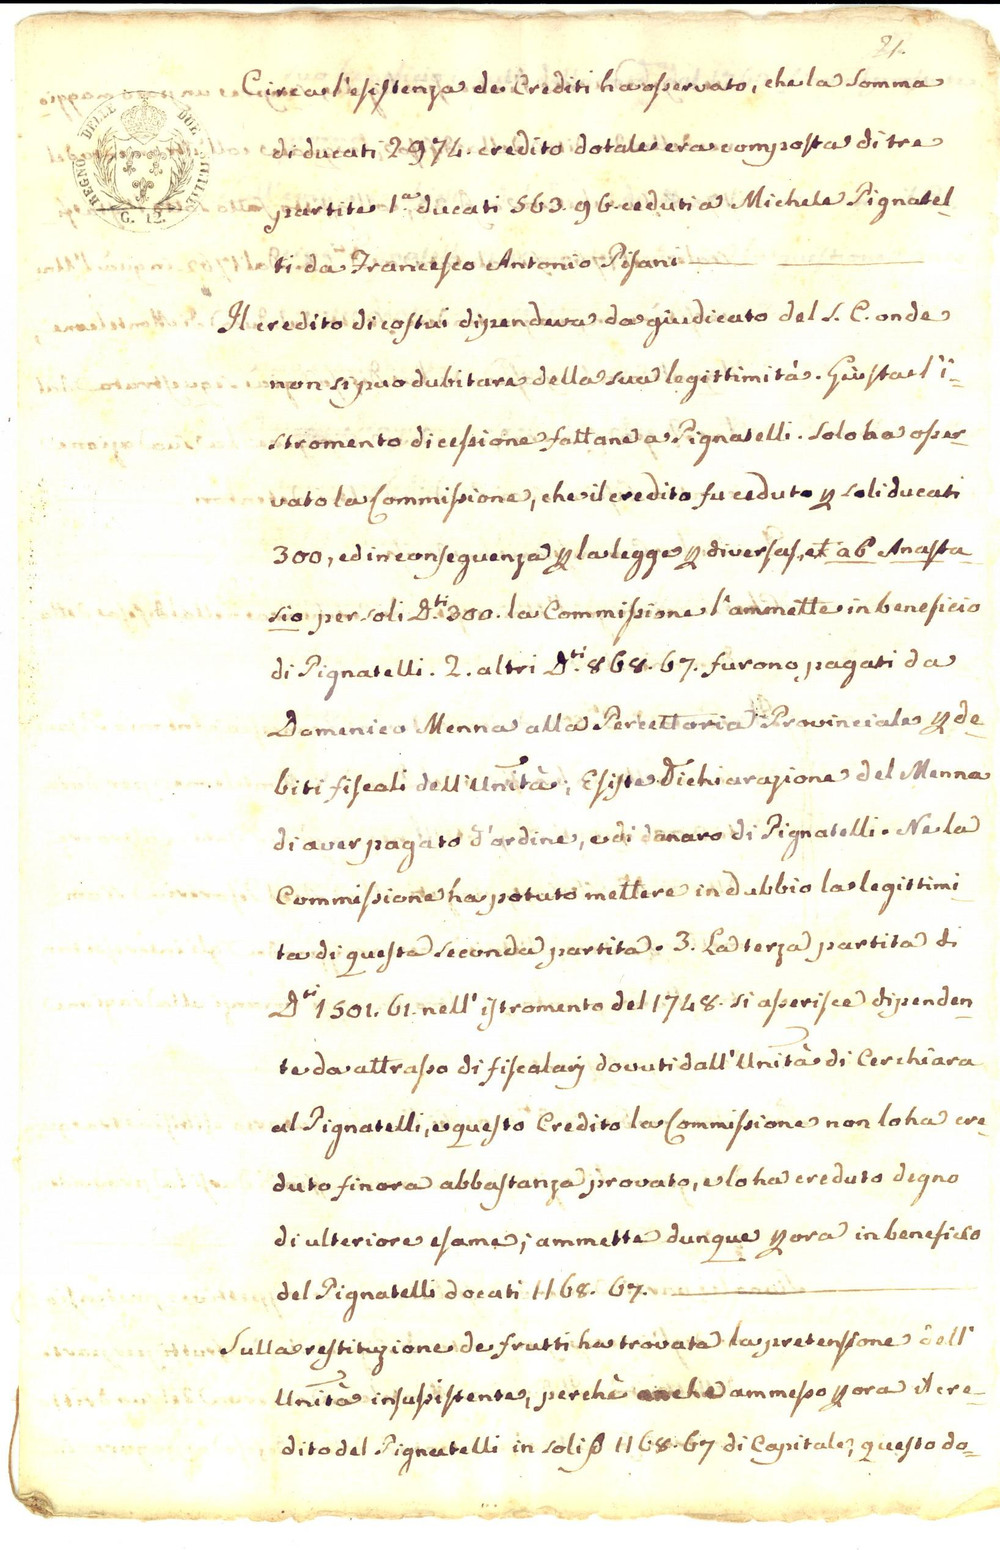 21.
REGNO DELLE DUE SICILIE
G. 12.
Circa l'esistenza de Crediti ha osservato, che la Somma
di ducati 2974. credito dotale era composta di tre
partite 1.a ducati 563.96. ceduti a Michele Pignatel-
li da Francesco Antonio Pisani
Il credito di costui dipendeva da giudicato del S. C. onde
non si può dubitare della sua legittimità. Giusta l'i-
stromento di cessione fattane a Pignatelli. Solo ha osser-
vato la Commissione, che il credito fu ceduto p soli ducati
300, ed in conseguenza p la legge p diversas, et ab Anasta-
sio per soli D.ti 300. la Commissione l'ammette in beneficio
di Pignatelli. 2. altri D.ti 868.67. furono pagati da
Domenico Menna alla Percettoria Provinciale p de-
biti fiscali dell'Unità; Esiste Dichiarazione del Menna
di aver pagato d'ordine, e di danaro di Pignatelli. Ne la
Commissione ha potuto mettere in dubbio la legittimi-
ta di questa seconda partita. 3. La terza partita di
D.ti 1501.61. nell'istromento del 1748. si asserisce dipenden-
te da attrasso di fiscalarj dovuti dall'Unità di Cerchiara
al Pignatelli, e questo Credito la Commissione non lo ha cre-
duto finora abbastanza provato, e lo ha creduto degno
di ulteriore esame; ammette dunque p ora in beneficio
del Pignatelli docati 1168.67.
Sulla restituzione de frutti ha trovata la pretensione dell'
Unità insussistente, perchè anche ammesso p ora il cre-
dito del Pignatelli in soli 1168.67 di Capitale, questo do-